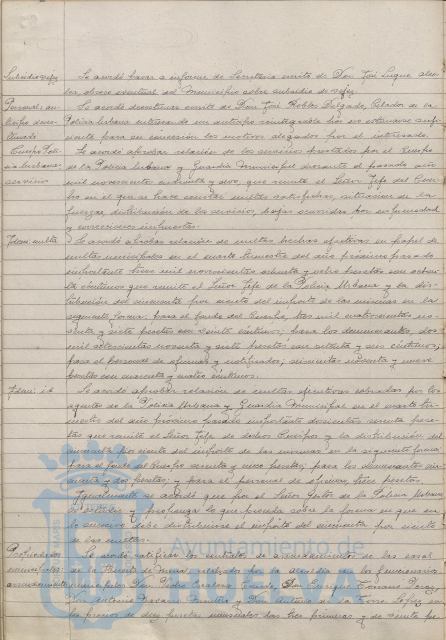 Subsidio vejez
Se acordó pasar a informe de Secretaria escrito de Don José Luque
obrero eventual del Municipio sobre subsidio de vejez.
Personal: an-
ticipo deses-
timado
Se acordó desestimar escrito de Don José Robles Delgado, Celador de la
Policia Urbana interesando un anticipo reintegrable por no estimarse sufi-
ciente para su concesión los motivos alegados por el interesado.
Cuerpo Poli-
cia Urbana:
servicios
Se acordó aprobar relación de los servicios prestados por el Cuerpo
de la Policia Urbana y Guardia Municipal durante el pasado año
mil novecientos cincuenta y dos, que remite el Señor Jefe del Cuer-
po en el que se hace constar multas satisfechas, situacion de la
fuerza, distribución de los servicios, bajas ocurridas por enfermedad
y correcciones impuestas.
Idem: multas
Se acordó aprobar relación de multas hechas efectivas en papel de
multas municipales en el cuarto trimestre del año próximo pasado
importante mil novecientas ochenta y ocho pesetas con
céntimos que remite el Señor Jefe de la Policia Urbana y la dis-
tribución del cincuenta por ciento del importe de las mismas en la
siguiente forma: para el fondo del Cuerpo, tres mil cuatrocientas no-
venta y siete pesetas con céntimos; para los denunciantes, dos
mil noventa y siete pesetas con y seis céntimos;
para el personal de oficinas y notificador, noventa y nueve
pesetas con cuarenta y cuatro céntimos.
Idem: id
Se acordó aprobar relación de multas efectivas cobradas por los
agentes de la Policia Urbana y Guardia Municipal en el cuarto tri-
mestre del año próximo pasado importante doscientas pese-
tas que remite el Señor Jefe de dichos Cuerpos y la distribución del
cincuenta por ciento del importe de las mismas en la siguiente forma:
para el fondo del Cuerpo y cinco pesetas, para los denunciantes
y dos pesetas; y para el personal de oficinas, pesetas.
Igualmente se acordó que por el Señor Gestor de la Policia Urbana
se estudie y proponga lo que proceda sobre la forma en que en
lo sucesivo debe distribuirse el importe del cincuenta por ciento
de las multas.
Propiedades
municipales:
arrendamientos
Se acordó ratificar los contratos de arrendamientos de las casas
de la Barriada de realizados por la alcaldia en los funcionarios
municipales Don Pedro Don Enrique
Don Antonio y Don Antonio de la Torre López en
los precios de diez pesetas mensuales las tres primeras y de
MDSS
Ayuntamiento de
HUELVA